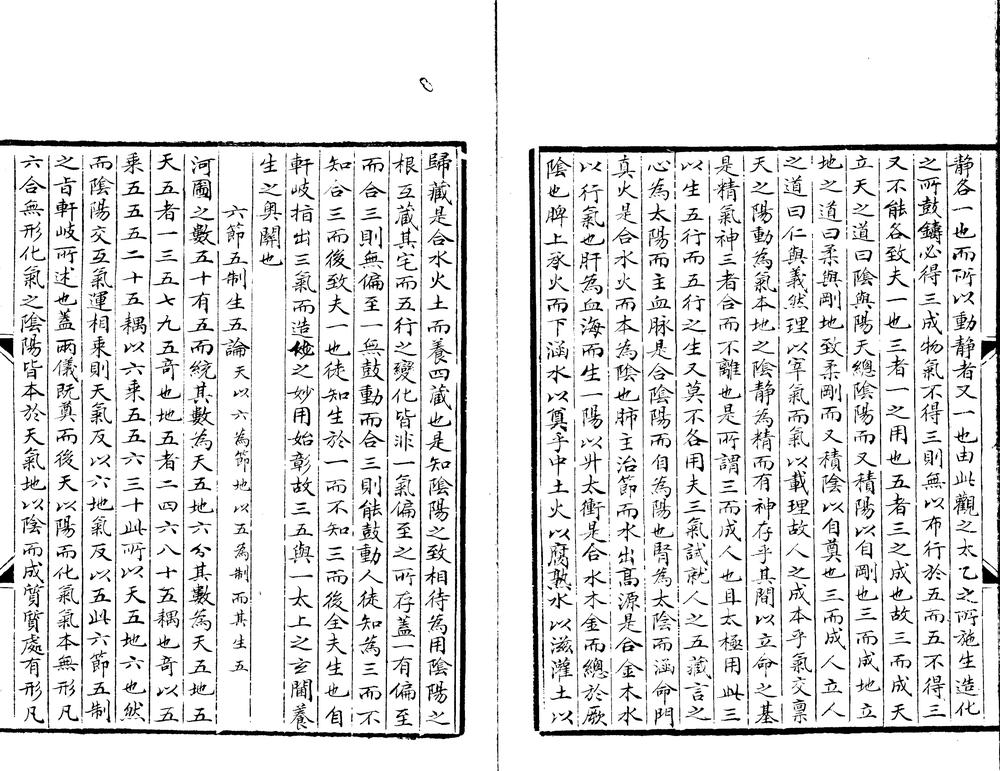 靜各一也而所以動靜者又一也由此觀之太乙之所施生造化
之所鼓鑄必得三成物氣不得三則無以布行於五而五不得三
又不能各致夫一也三者一之用也五者三之成也故三而成天
立天之道曰陰與陽天總陰陽而又積陽以自剛也三而成地立
地之道曰柔與剛地致柔剛而又積陰以自奠也三而成人立人
之道曰仁與義然理以宰氣而氣以載理故人之成本乎氣交禀
天之陽動為氣本地之陰靜為精而有神存乎其間以立命之基
是精氣神三者合而不離也是所謂三而成人也且太極用此三
以生五行而五行之生又莫不各用夫三氣試就人之五藏言之
心為太陽而主血脉是合陰陽而自為陽也腎為太陰而涵命門
真火是合水火而本為陰也肺主治節而水出高源是合金木水
以行氣也肝為血海而生一陽以升太衝是合水木金而總於厥
陰也脾上承火而下涵水以奠乎中土火以腐熟水以滋灌土以
歸藏是合水火土而養四藏也是知陰陽之致相待為用陰陽之
根互藏其宅而五行之變化皆非一氣偏至之所存蓋一有偏至
而合三則無偏至一無鼓動而合三則能鼓動人徒知為三而不
知合三而後致夫一也徒知生於一而不知三而後全夫生也自
軒岐指出三氣而造化之妙用始彰故三五與一太上之玄關養
生之奧關也
六節五制生五論天以六為節地以五為制而其生五
河圖之數五十有五而統其數為天五地六分其數為天五地五
天五者一三五七九五奇也地五者二四六八十五耦也奇以五
乘五五五二十五耦以六乘五五六三十此所以天五地六也然
而陰陽交互氣運相乘則天氣反以六地氣反以五此六節五制
之旨軒岐所述也蓋兩儀既奠而後天以陽而化氣氣本無形凡
六合無形化氣之陰陽皆本於天氣地以陰而成質質處有形凡